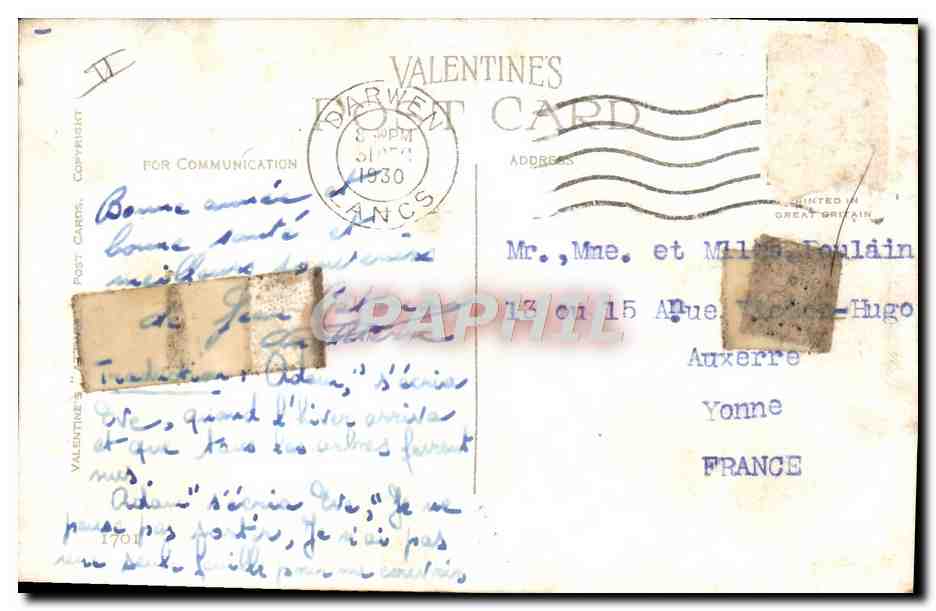 II
VALENTINE'S
POST CARD
DARWEN
8 PM
31 DEC
1930
LANCS
FOR COMMUNICATION
ADDRESS
PRINTED IN
GREAT BRITAIN
VALENTINE'S POST CARDS, COPYRIGHT
Bonne année et
bonne santé et
meilleurs souvenirs
de
Tradition : Adam," s'écria
Eve, quand l'hiver arriva
et que tous les arbres furent
nus
Adam" s'écria Eve, "Je ne
peux pas sortir, Je n'ai pas
une seule feuille pour me couvrir
1701
Mr.,Mme. et Poulain
13 ou 15 Anue -Hugo
Auxerre
Yonne
FRANCE
CPARPHIL